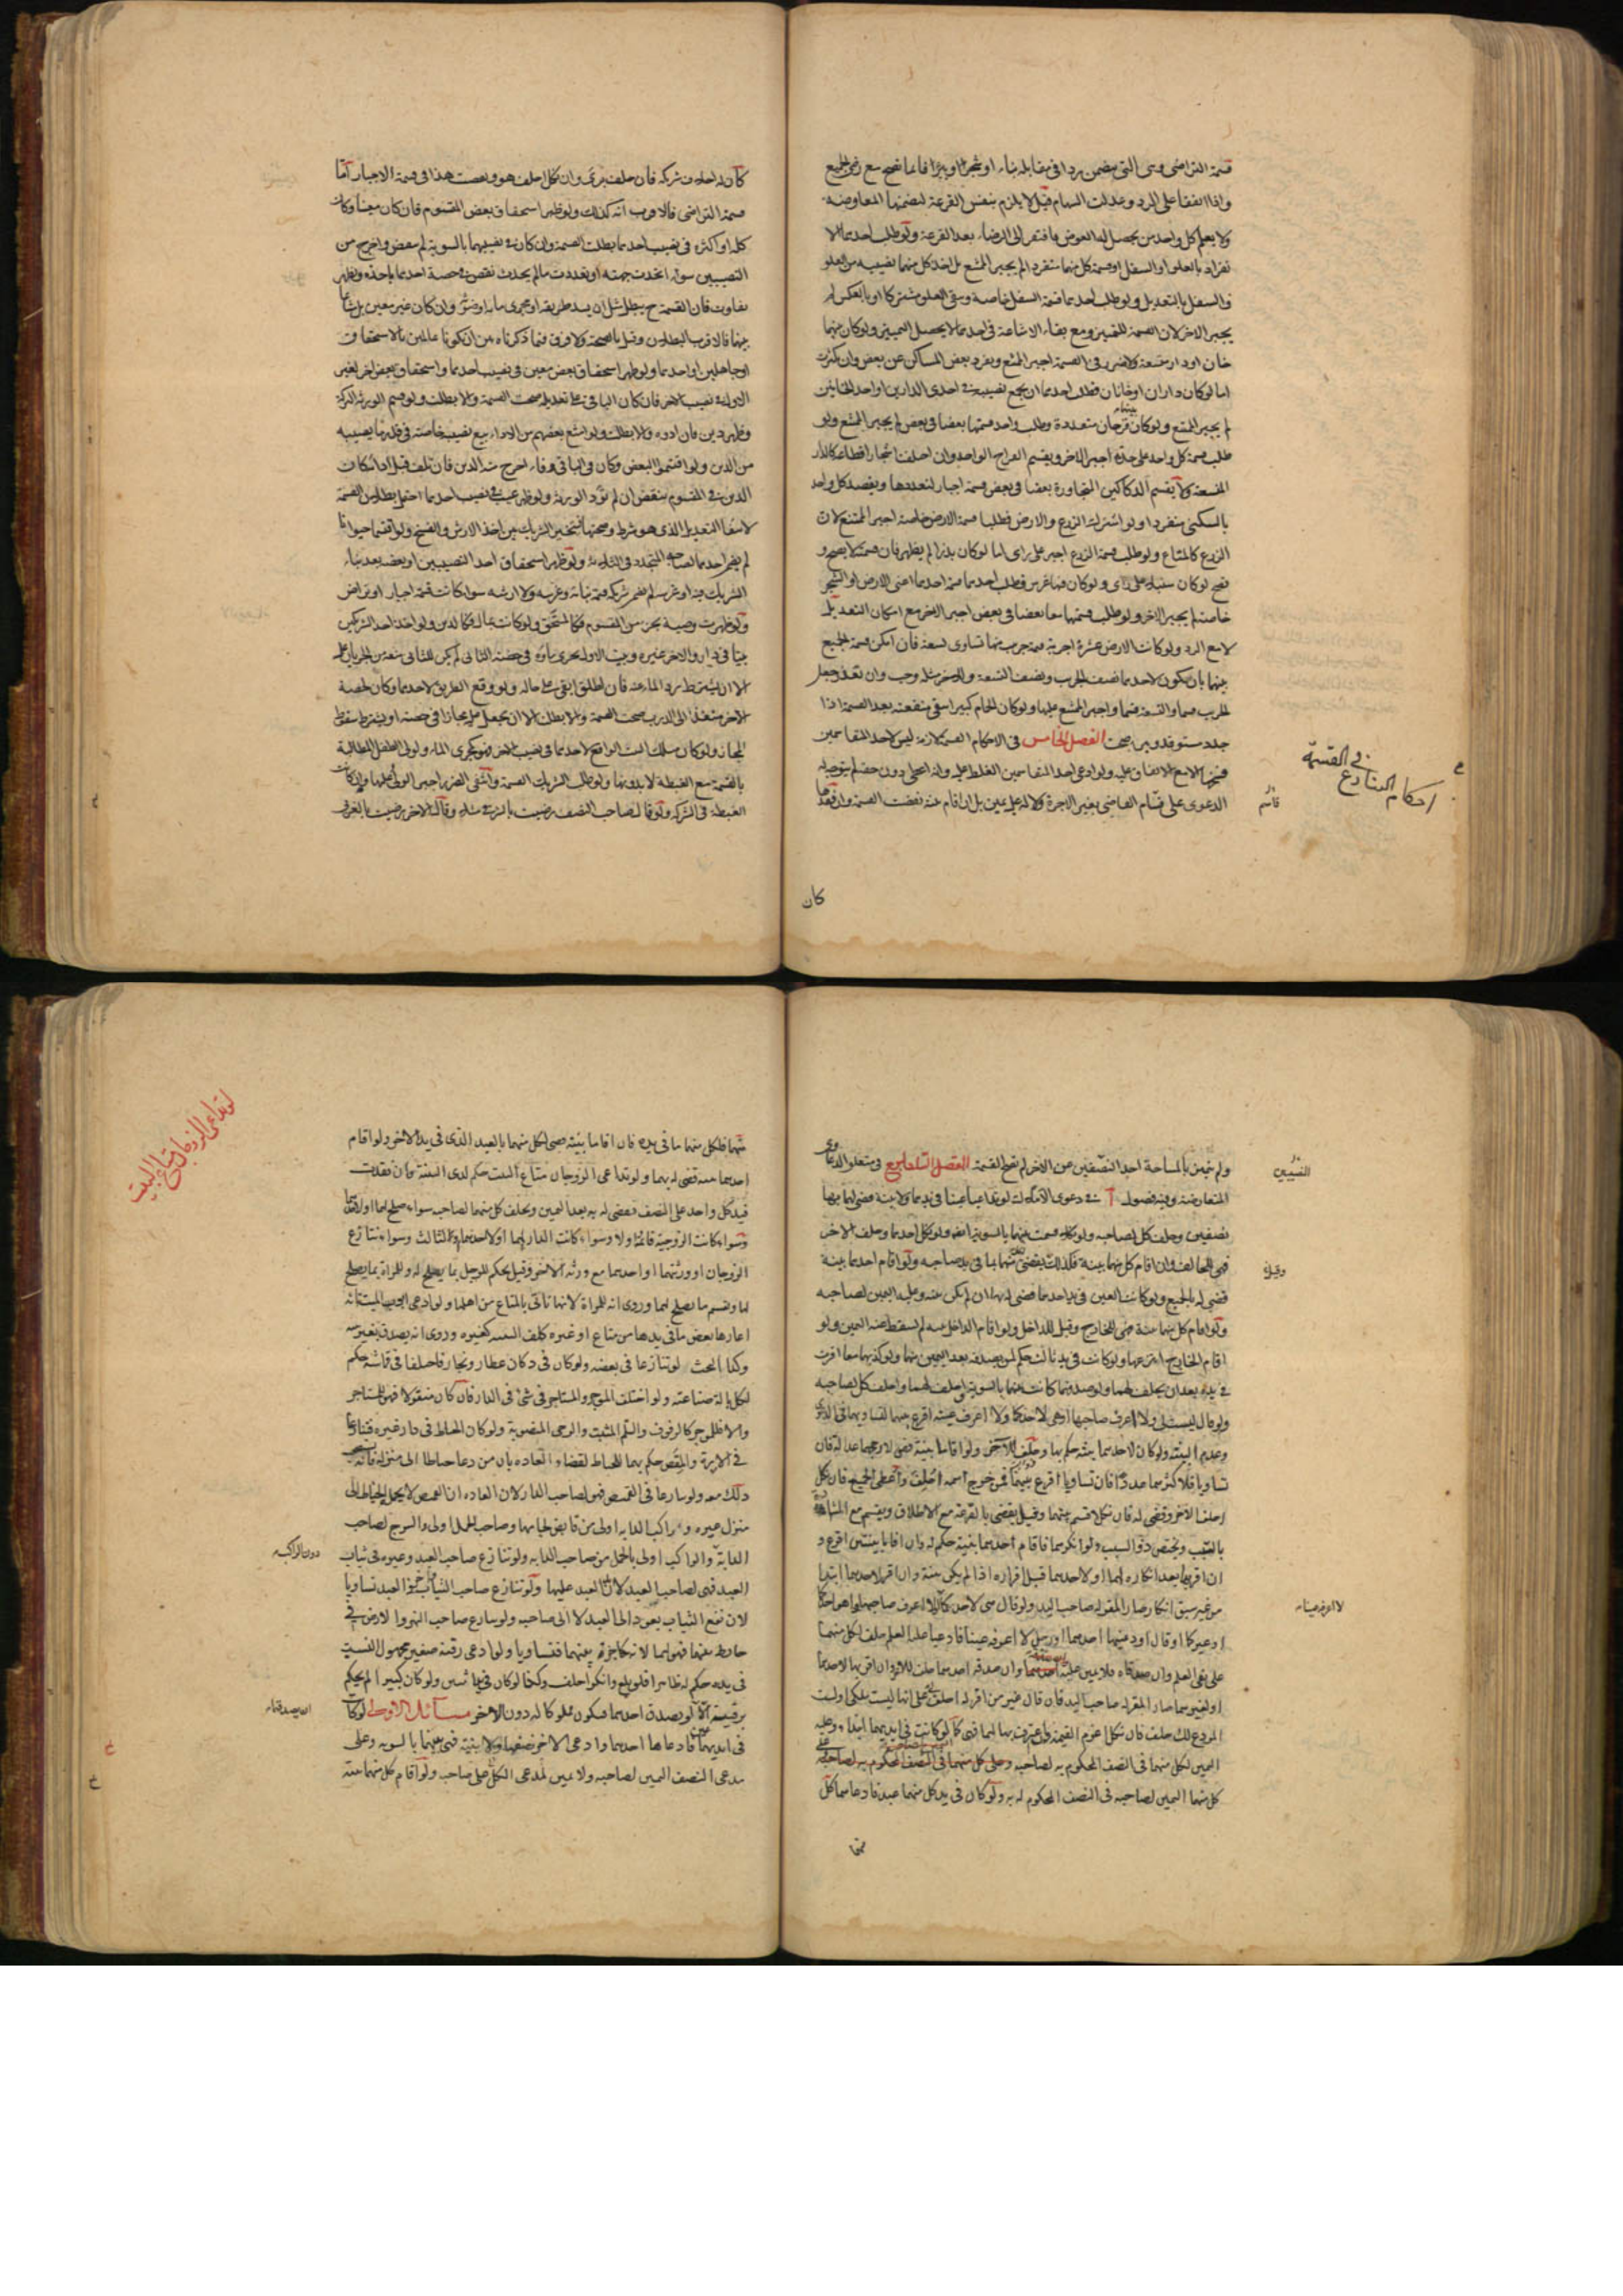 قسمة التراضى وهى التى يتضمن ردا فى مقابلة بناء او شجر او بئر فانما تصح مع رضى الجميع
واذا اتفقا على الرد وعدلت السهام قيل لا يلزم بنفس القرعة لتضمنها المعاوضة
ولا يعلم كل واحد من يحصل له العوض فافتقر الى الرضاء بعد القرعة ولو طلب احدهما الا
نفراد بالعلو او السفل او قسمة كل منهما منفردا لم يجبر الممتنع بل اخذ كل منهما نصيبه من العلو
والسفل بالتعديل ولو طلب احدهما قسمة السفل خاصة ويبقى العلو مشتركا او بالعكس لم
يجبر الاخر لان القسمة للتمييز ومع بقاء الاشاعة فى احدهما لا يحصل التمييز ولو كان بينهما
خان او دار متسعة ولا ضرر فى القسمة اجبر الممتنع ويفرد بعض المساكن عن بعض وان تكثرت
اما لو كان داران او خانان فطلب احدهما ان يجمع نصيبه فى احدى الدارين او احد الخانين
لم يجبر الممتنع ولو كان بينهما قرحان متعددة وطلب واحد قسمتها بعضا فى بعض لم يجبر الممتنع ولو
طلب قسمة كل واحد على حدة اجبر الاخر ويقسم القراح الواحد وان اختلف اشجار اقطاعه كالدار
المتسعة ولا يقسم الدكاكين المتجاورة بعضا فى بعض قسمة اجبار لتعددها ويقصد كل واحد
بالسكنى منفردا ولو اشترك الزرع والارض فطلبا قسمة الارض خاصة اجبر الممتنع لان
الزرع كالمتاع ولو طلب قسمة الزرع اجبر على راى اما لو كان بذرا لم يظهر فان قسمته لا يصح و
تصح لو كان سنبلا على راى ولو كان فيها غرس فطلب احدهما قسمة احدهما اعنى الارض او الشجر
خاصة لم يجبر الاخر ولو طلب قسمتهما معا بعضا فى بعض اجبر الاخر مع امكان التعديل
لا مع الرد ولو كانت الارض عشرة اجربة قيمة جريب منها تساوى تسعة فان امكن قسمة الجميع
بينهما بان يكون لاحدهما نصف الجريب ونصف التسعة وللاخر مثله وجب وان تعذر وجعل
الجريب قسما والتسعة قسما واجبر الممتنع عليها ولو كان الحمام كبيرا يبقى منفعته بعد القسمة اذا
جدد مستوقد وبير صحت الفصل الخامس فى الاحكام القسمة لازمة ليس لاحد المتقاسمين
فسخها الا مع الاتفاق عليه ولو ادعى احد المتقاسمين الغلط عليه وانه اعطى دون حقه لم يتوجه له
الدعوى على قسام القاضى بغير الاجرة ولا له عليه يمين بل ان اقام بينة نقضت القسمة وان فقدها
فى القسمة
احكام التنازع
قاسم
كان
كان له احلاف شريكه فان حلف برئ وان نكل احلف هو ونقضت هذا فى قسمة الاجبار اما
قسمة التراضى فالاقرب انه كذلك ولو ظهر استحقاق بعض المقسوم فان كان معينا وكان
كله او اكثره فى نصيب احدهما بطلت القسمة وان كان فى نصيبهما بالسوية لم ينقض واخرج من
النصيبين سواء اتحدت جهته او تعددت ما لم يحدث نقص فى حصة احدهما باخذه ويظهر
تفاوت فان القسمة ح يبطل مثل ان يسد طريقه او مجرى مائه او ضوئه وان كان غير معين بل مشاعا
بينهما فالاقرب البطلان وقيل بالصحة ولا فرق فيما ذكرناه من ان يكونا عالمين بالاستحقاق
او جاهلين او احدهما ولو ظهر استحقاق بعض معين فى نصيب احدهما واستحقاق بعض اخر لغير
الاول فى نصيب الاخر فان كان الباقى على تعديله صحت القسمة والا بطلت ولو قسم الورثة التركة
وظهر دين فان ادوه والا بطلت ولو امتنع بعضهم من الاداء بيع نصيبه خاصة فى قدر ما يصيبه
من الدين ولو اقتسموا البعض وكان فى الباقى وفاء اخرج منه الدين فان تلف قبل ادائه كان
الدين فى المقسوم ينقض ان لم يؤد الورثة ولو ظهر عيب فى نصيب احدهما احتمل بطلان القسمة
لانتفاء التعديل الذى هو شرط وصحتها فيتخير الشريك بين اخذ الارش والفسخ ولو اقتسما حيوانا
لم يضمن احدهما لصاحبه المتجدد فى الثلثة ولو ظهر استحقاق احد النصيبين او بعضه بعد بناء
الشريك فيه او غرسه لم يضمن شريكه قيمة بنائه وغرسه ولا ارشه سواء كانت قسمة اجبار او تراض
ولو ظهرت وصية بجزء من المقسوم فكالمستحق ولو كانت بمال فكالدين ولو اخذ احد الشريكين
بيتا فى دار والاخر غيره وبيت الاول يجرى ماؤه فى حصة الثانى لم يكن للثانى منعه من الجريان عليه
الا ان يشترط رد الماء عنه فان اطلق ابقى على حاله ولو وقع الطريق لاحدهما وكان لحصة
الاخر منفذ الى الدرب صحت القسمة والا بطلت الا ان يجعل عليه مجازا فى حصته او يشترط سقوط
المجاز ولو كان مسلك البيت الواقع لاحدهما فى نصيب الاخر فهو كمجرى الماء ولولى الطفل المطالبة
بالقسمة مع الغبطة لا بدونها ولو طلب الشريك القسمة وانتفى الضرر اجبر الولى عليها وان كانت
الغبطة فى الشركة ولو قال لصاحب النصف رضيت بالشرقى مثلا وقال الاخر رضيت بالغربى
ولم يتميز بالمساحة احد النصفين عن الاخر لم يصح القسمة الفصل السادس فى متعلق الدعاوى
المتعارضة وفيه فصول آ فى دعوى الاملاك لو تداعيا عينا فى يدهما ولا بينة قضى لهما بها
نصفين وحلف كل لصاحبه ولو نكلا قسمت بينهما بالسوية ايضا ولو نكل احدهما وحلف الاخر
فهى للحالف وان اقام كل منهما بينة فكذلك يقضى لكل منهما بما فى يد صاحبه ولو اقام احدهما بينة
قضى له بالجميع ولو كانت العين فى يد احدهما قضى له بها ان لم يكن بينة وعليه اليمين لصاحبه
ولو اقام كل منهما بينة قضى للخارج وقيل للداخل ولو اقام الداخل بينة لم يسقط عنه اليمين ولو
اقام الخارج انتزعها ولو كانت فى يد ثالث حكم لمن يصدقه بعد اليمين منهما ولو كذبهما معا اقرت
فى يده بعد ان يحلف لهما ولو صدقهما كانت بينهما بالسوية واحلف لهما واحلف كل لصاحبه
ولو قال ليست لى ولا اعرف صاحبها او هى لاحدكما ولا اعرف عينه اقرع بينهما لتساويهما فى الدعوى
وعدم البينة ولو كان لاحدهما بينة حكم بها وحلف للاخر ولو اقاما بينة قضى لارجحهما عدالة فان
تساويا فلاكثرهما عددا فان تساويا اقرع بينهما فمن خرج اسمه احلف واعطى الجميع فان نكل
احلف الاخر وقضى له فان نكلا قسم بينهما وقيل يقضى بالقرعة مع الاطلاق ويقسم مع الشهادة
بالسبب ويختص ذو السبب ولو انكرهما فاقام احدهما بينة حكم له وان اقاما بينتين اقرع و
ان اقر لهما بعد انكاره لهما او لاحدهما قبل اقراره اذا لم يكن بينة وان اقر لاحدهما ابتداء
من غير سبق انكار صار المقر له صاحب اليد ولو قال هى لاحدكما لا اعرف صاحبها اهو احدكما
او غيركما او قال اودعنيها احدهما او رجل لا اعرفه عينا فادعيا عليه العلم حلف لكل منهما
على نفى العلم وان صدقاه فلا يمين عليه وان صدقه احدهما حلف للاخر وان اقر بها لاحدهما
او لغيرهما صار المقر له صاحب اليد فان قال غير من اقر له احلف على انها ليست ملكى او لست
المودع لك حلف فان نكل اغرم القيمة وان اعترف بها لهما فهى كما لو كانت فى ايديهما ابتداء وعليه
اليمين لكل منهما فى النصف المحكوم به لصاحبه وعلى كل منهما فى النصف المحكوم به لصاحبه
كل منهما اليمين لصاحبه فى النصف المحكوم له به ولو كان فى يد كل منهما عبد فادعاهما كل
النصيبين
وقيل
لا اعرفه عينا
منهما
منهما فلكل منهما ما فى يده فان اقاما بينة قضى لكل منهما بالعبد الذى فى يد الاخر ولو اقام
احدهما بينة قضى له بهما ولو تداعى الزوجان متاع البيت حكم لذى البينة فان فقدت
فيد كل واحد على النصف فيقضى له به بعد اليمين ويحلف كل منهما لصاحبه سواء صلح لهما او لاحدهما
وسواء كانت الزوجية قائمة او لا وسواء كانت الدار لهما او لاحدهما او لثالث وسواء تنازع
الزوجان او ورثتهما او احدهما مع ورثة الاخر وقيل يحكم للرجل بما يصلح له وللمراة بما يصلح
لها ويقسم ما يصلح لهما وروى انه للمراة لانها تاتى بالمتاع من اهلها ولو ادعى ابو الميتة انه
اعارها بعض ما فى يدها من متاع او غيره كلف البينة كغيره وروى انه يصدق بغير بينة
وكذا البحث لو تنازعا فى بعضه ولو كان فى دكان عطار ونجار فاختلفا فى قماشه حكم
لكل بالة صناعته ولو اختلف الموجر والمستاجر فى شئ فى الدار فان كان منقولا فهو للمستاجر
والا فللموجر كالرفوف والسلم المثبت والرحى المنصوبة ولو كان الخياط فى دار غيره فتنازعا
فى الابرة والمقص حكم بهما للخياط لقضاء العادة بان من دعا خياطا الى منزله فانه يستصحب
ذلك معه ولو تنازعا فى القميص فهو لصاحب الدار لان العادة ان القميص لا يحمله الخياط الى
منزل غيره وراكب الدابة اولى من قابض لجامها وصاحب الحمل اولى والسرج لصاحب
الدابة والراكب اولى بالحمل من صاحب الدابة ولو تنازع صاحب العبد وغيره فى ثياب
العبد فهى لصاحب العبد لان يد العبد عليها ولو تنازع صاحب الثياب وغيره فى العبد تساويا
لان نفع الثياب يعود الى العبد لا الى صاحبه ولو تنازع صاحب النهر والارض فى
حائط بينهما فهو لهما لانه حاجز بينهما فتساويا ولو ادعى رقية صغير مجهول النسب
فى يده حكم له ظاهرا فلو بلغ وانكر احلف وكذا لو كان فى يد اثنين ولو كان كبيرا لم يحكم
برقيته الا لو يصدق احدهما فيكون مملوكا له دون الاخر مسائل الاولى لو كان
فى ايديهما فادعاها احدهما وادعى الاخر نصفها ولا بينة فهى بينهما بالسوية وعلى
مدعى النصف اليمين لصاحبه ولا يمين لمدعى الكل على صاحبه ولو اقام كل منهما بينة
لو تداعى الزوجان متاع البيت
دون الراكب
ان يصدقهما